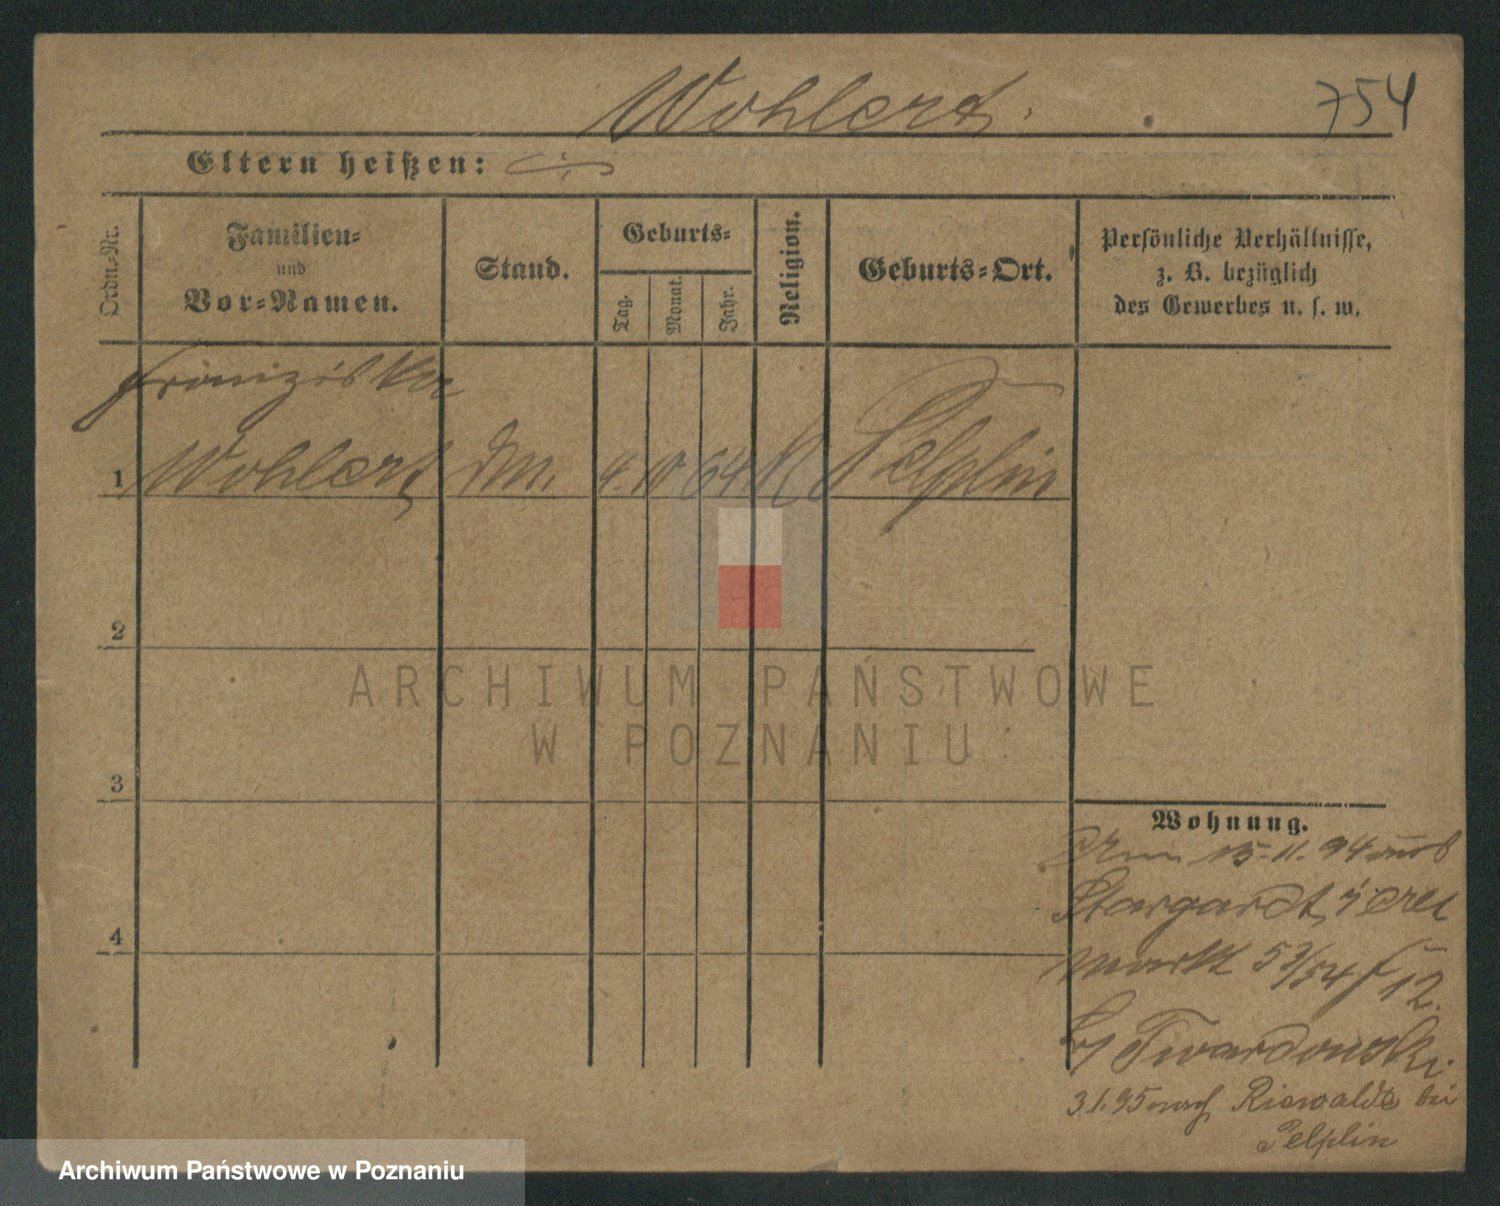 Wohlert.
754
Eltern heißen:
Ordn.-Nr.
Familien-
und
Vor-Namen.
Stand.
Geburts-
Tag.
Monat.
Jahr.
Religion.
Geburts-Ort.
Persönliche Verhältnisse,
z. B. bezüglich
des Gewerbes u. s. w.
Franziska
1 Wohlert 4. 10 64 K Pelplin
2
3
4
Wohnung.
15.11.94 aus
Stargardt,
markt 53/54
Twardowski.
3.1.95 nach Riewalde bei
Pelplin
ARCHIWUM PAŃSTWOWE
W POZNANIU
Archiwum Państwowe w Poznaniu